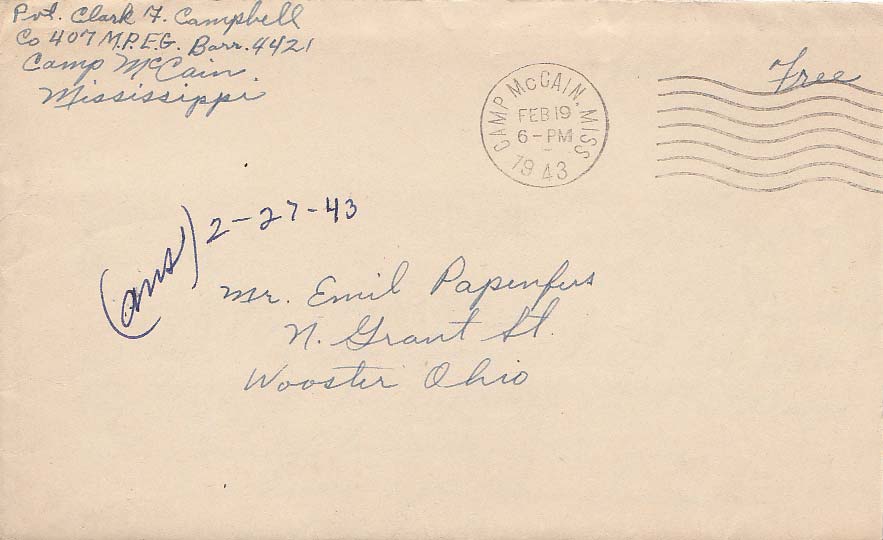 Pvt. Clark F. Campbell
Co 407 M.P.E.G. Barr. 4421
Camp McCain.
Mississippi
Free
CAMP McCAIN, MISS
FEB 19
6-PM
1943
(ans) 2-27-43
Mr. Emil Papenfus
N. Grant St.
Wooster Ohio